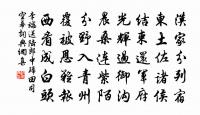 漢家分列宿
東土佐諸侯
結束還軍府
光輝過御溝
農桑連紫陌
分野入青州
覆被恩難報
西看成白頭
李端送陸郎中歸田司
空幕詞典網集